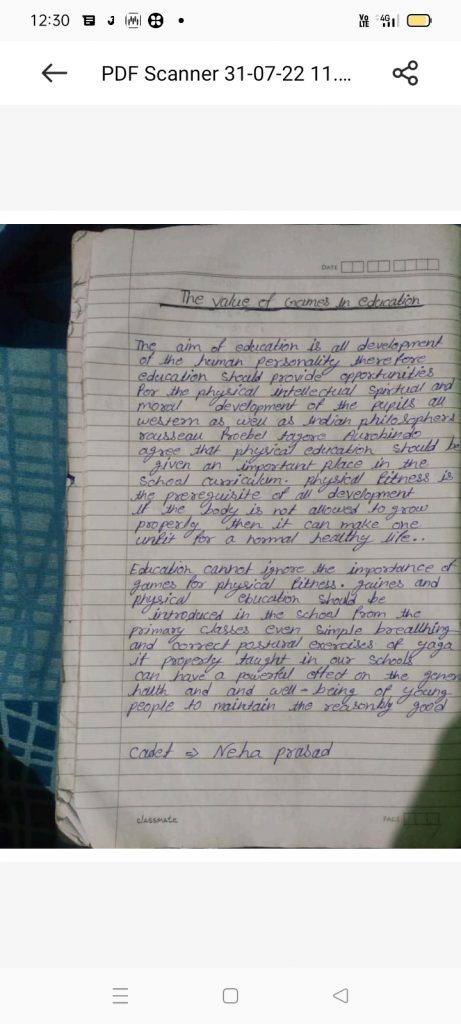 12:30
Vo LTE 4G
PDF Scanner 31-07-22 11....
DATE
The value of Games In education
The aim of education is all development
of the human personality therefore
education should provide opportunities
for the physical intellectual spirtual and
moral development of the pupils all
western as well as Indian philosophers
rausseau Froebel tagore Aurobindo
agree that physical education should be
given an important place in the
school curriculum. physical fitness is
the prerequisite of all development
if the body is not allowed to grow
properly then it can make one
unfit for a normal healthy life..
Education cannot ignore the importance of
games for physical fitness. gaines and
physical education should be
introduced in the school from the
primary classes even simple breallhing
and correct postural exercises of yaga
if properly taught in our schools
can have a powerful effect on the gener
halth and and well-being of young
people to maintain the reasonbly good
Cadet ⇒ Neha prasad
classmate
PAGE